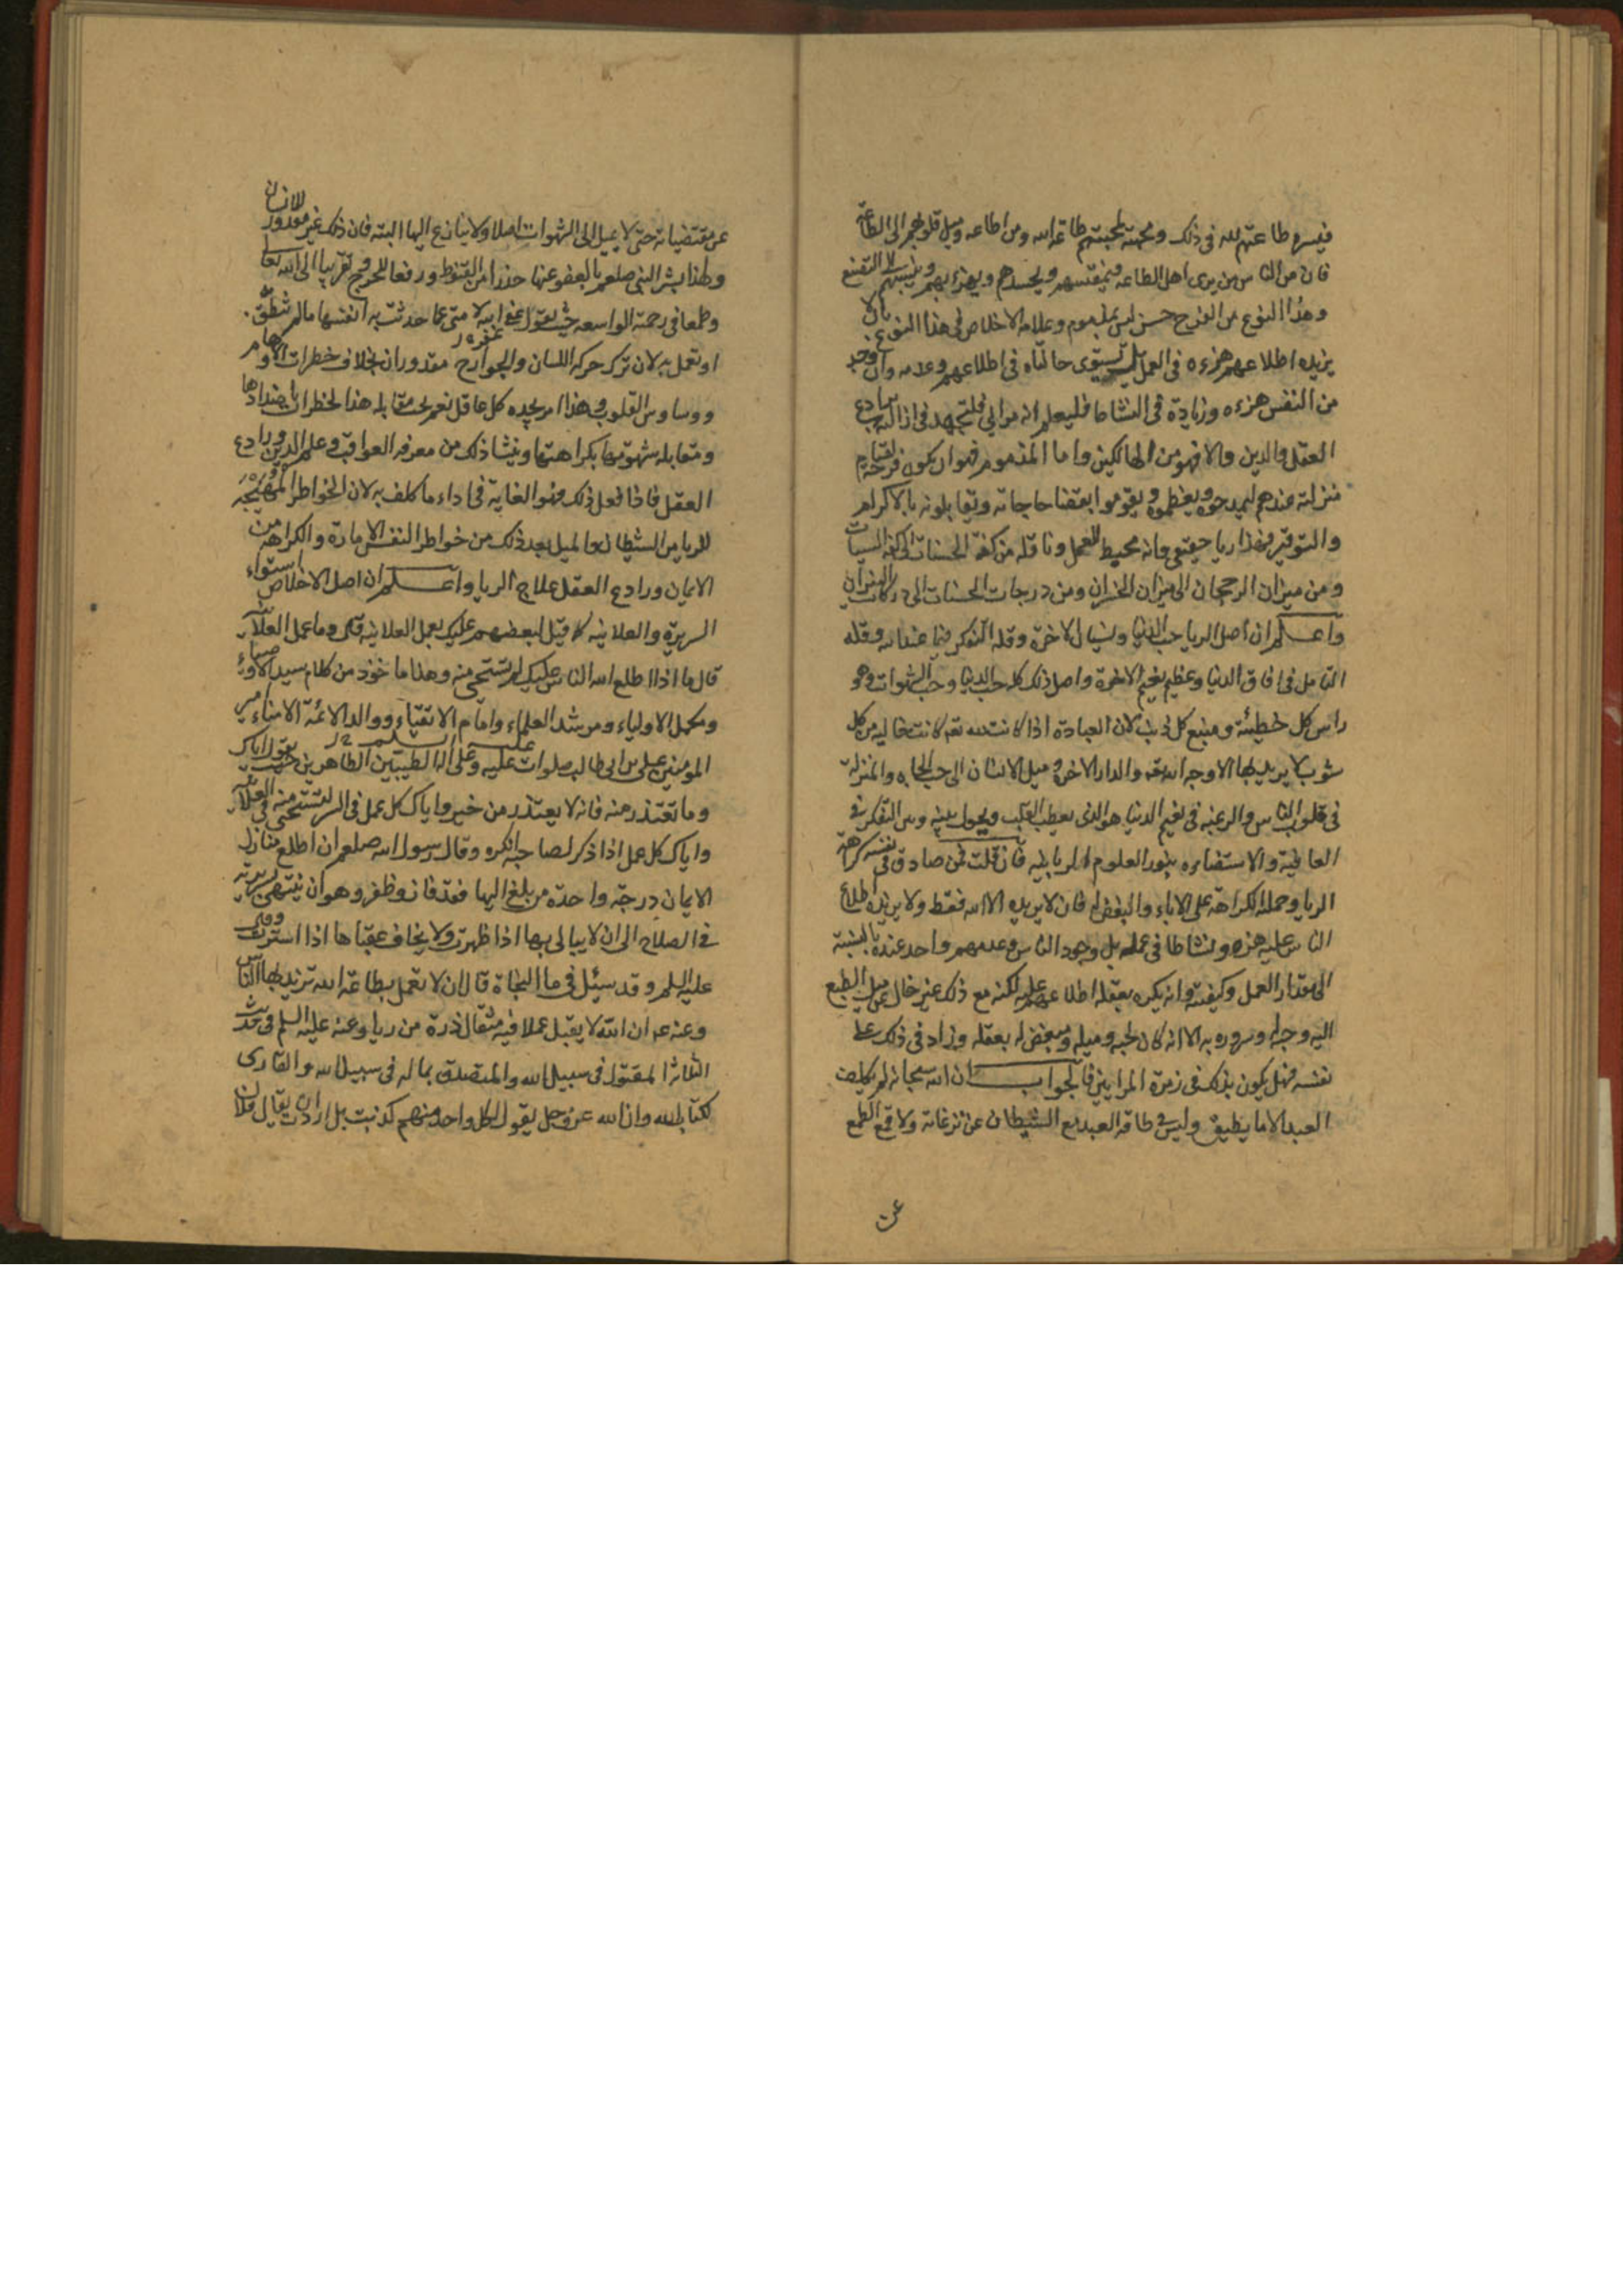 فيسره طاعتهم لله في ذلك ومحبته لمحبتهم طاعة الله ومن اطاعه وميل قلوبهم الى الطاعة
فان من الناس من يرى اهل الطاعه فيمقتهم ويحسدهم ويهزء بهم وينسبهم الى التصنع
وهذا النوع من الفرح حسن ليس بمذموم وعلامه الاخلاص في هذا النوع بان لا
يزيده اطلاعهم هزءه في العمل بل يستوى حالتاه في اطلاعهم وعدمه وان وجد
من النفس هزءه وزيادة في النشاط فليعلم انه مرائي فليجتهد في ازالته برادع
العقل والدين والا فهو من الهالكين واما المذموم فهو ان يكون فرحه لقيام
منزلته عندهم ليمدحوه ويعظموه ويقوموا بقضا حاجاته ويقابلونه بالاكرام
والتوقير فهذا ريا حقيقي وانه محيط للعمل وناقله من كفة الحسنات الى كفة السيات
ومن ميزان الرجحان الى ميزان الخسران ومن درجات الحسنات الى دركات النيران
واعلم ان اصل الريا حب الدنيا ونسيان الاخرة وقلة التفكر فيما عند الله وقله
التامل في افات الدنيا وعظيم نعيم الاخرة واصل ذلك كله حب الدنيا وحب الشهوات وهو
راس كل خطيئة ومنبع كل ذنب لان العبادة اذا كانت لله تعه كانت خاليه من كل
شوب لا يريد بها الا وجه الله تعه والدار الاخرة وميل الانسان الى حب الجاه والمنزلة
في قلوب الناس والرغبه في نعيم الدنيا هو الذى يعطب القلب ويحول بينه وبين التفكر في
العاقبة والاستضاءه بنور العلوم الربانيه فان قلت فمن صادق في نفسه كراهة
الريا وحمله الكراهة على الاباء والبغض له فان لا يريده الا الله فقط ولا يزيده اطلاع
الناس عليه هزه ونشاطا في عمله بل وجود الناس وعدمهم واحد عنده بالنسبة
الى مقدار العمل وكيفيته وانه يكره بعقله اطلاعهم عليه لكنه مع ذلك غير خال عن ميل الطبع
اليه وحبه وسروره به الا انه كان لحبه وميله ومبغض له بعقله وزاد في ذلك على
نفسه فهل يكون بذلك في زمرة المرايين فالجواب ان الله سبحانه لم يكلف
العبد الا ما يطيق وليس في طاقة العبد منع الشيطان عن نزغاته ولا قمع الطبع
عن
عن مقتضياته حتى لا يميل الى الشهوات اصلا ولا ينازع اليها البته فان ذلك غير مقدور للانسان
ولهذا بشر النبي صلعم بالعفو عنها حذرا من القنوط ورفعا للحرج وتقريبا الى الله تعا
وطمعا في رحمته الواسعه حيث يقول عفى الله لامتي عما حدثت به انفسها ما لم تنطق به
او تعمل به لان ترك حركه اللسان والجوارح مقدوران بخلاف خطرات الاوهام
ووساوس القلوب وهذا امر يجده كل عاقل نعم يجب مقابله هذا الخطرات باضدادها
ومقابله شهوتها بكراهتها وينشا ذلك من معرفه العواقب وعلم الدين ورادع
العقل فاذا فعل ذلك فهو الغاية في اداء ما كلف به لان الخواطر المهيجة
للريا من الشيطان والميل بعد ذلك من خواطر النفس الامارة والكراهه من
الايمان ورادع العقل علاج الريا واعلم ان اصل الاخلاص استواء
السريرة والعلانيه كما قيل لبعضهم عليك بعمل العلانيه قال وما عمل العلانية
قال ما اذا اطلع الله الناس عليك لم تستحي منه وهذا ماخوذ من كلام سيد الاوصياء
ومكمل الاولياء ومرشد العلماء وامام الاتقياء ووالد الائمة الامناء امير
المومنين على بن ابى طالب صلوات عليه وعلى اله الطيبين الطاهرين حيث يقول اياك
وما تعتذر منه فانه لا يعتذر من خير واياك كل عمل في السر تستحى منه في العلانية
واياك كل عمل اذا ذكر لصاحبه انكره وقال رسول الله صلعم ان اطلع منازل
الايمان درجة واحدة من بلغ اليها فقد فاز وظفر وهو ان ينتهى بسريرته
في الصلاح الى ان لا يبالى بها اذا ظهرت ولا يخاف عقباها اذا استترت وقال
عليه السلم وقد سيئل في ما النجاة قال ان لا تعمل بطاعة الله تريد بها الناس
وعنه عه ان الله لا يقبل عملا فيه مثقال ذرة من ريا وعنه عليه السلم في حديث
الثلاثة المقتول في سبيل الله والمتصدق بماله في سبيل الله والقارى
لكتاب الله وان الله عز وجل يقول لكل واحد منهم كذبت بل اردت ان يقال فلان